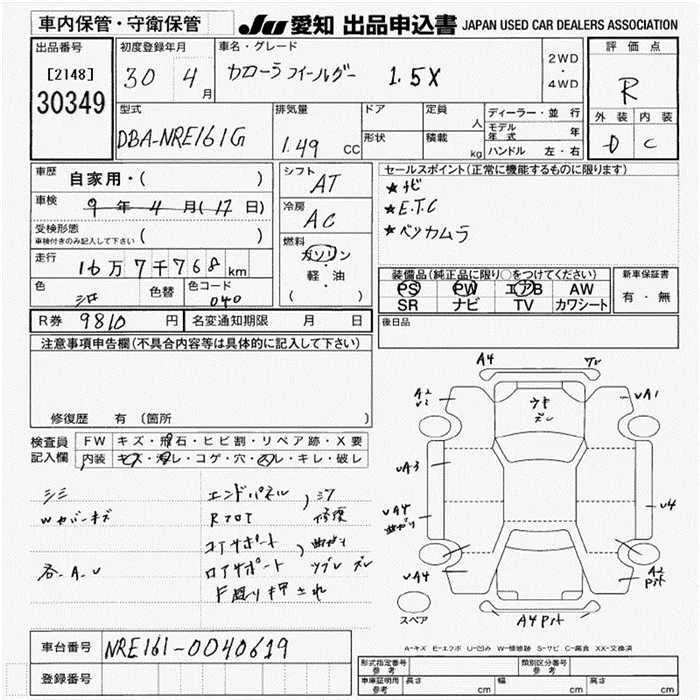 車内保管・守衛保管
JU 愛知 出品申込書 JAPAN USED CAR DEALERS ASSOCIATION
出品番号
[2148]
30349
初度登録年月
30 4月
車名・グレード
カローラ フィールダー 1.5X
2WD
・
4WD
評価点
R
外装 内装
D C
型式
DBA-NRE161G
排気量
1.49 CC
ドア
形状
定員 人
積載 kg
ディーラー・並行
モデル年式 年
ハンドル 左・右
車歴
自家用・( )
車検
9年4月(17日)
受検形態
車検付きのみ記入して下さい ( )
走行
16万7千768km
色 シロ
色替
色コード 040
シフト AT
冷房 AC
燃料
ガソリン
軽・油
( )
セールスポイント(正常に機能するものに限ります)
★ナビ
★E.T.C
★バックカムラ
装備品(純正品に限り○をつけてください)
PS PW エアB AW
SR ナビ TV カワシート
新車保証書
有・無
後日品
R券 9810円
名変通知期限 月 日
注意事項申告欄(不具合内容等は具体的に記入して下さい)
修復歴 有(箇所 )
検査員記入欄
FW キズ・飛石・ヒビ割・リペア跡・X要
内装 キズ・汚レ・コゲ・穴・スレ・キレ・破レ
シミ
Wカバーキズ
各.A.U
エンドパネル
Rフロア
修復
コアサポート
曲がり
ロアサポート
ズレ
A4
A2
UA1
ウキ
ズレ
UA3
UA4
曲がり
U4
UA4
A2
Pキト
A4 Pキト
スペア
A-キズ E-エクボ U-凹み W-補修跡 S-サビ C-腐食 XX-交換済
車台番号 NRE161-0040619
登録番号
形式指定番号 参考
類別区分番号 参考
車庫証明用 参考 長さ cm 幅 cm 高さ cm